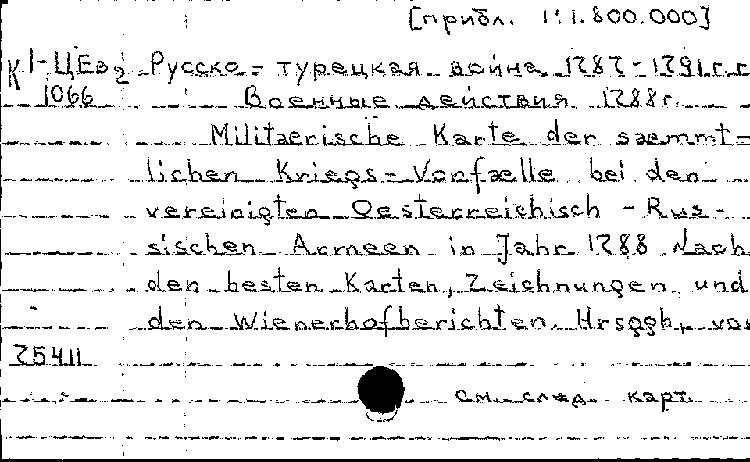 [прибл. 1:1.800.000]
К 1-ЦЕв Русско-турецкая война 1787-1791г.г
2
1066 Военные действия 1788г.
Militaerische Karte der saemmt-
lichen Kriegs-Vorfaelle bei den
vereinigten Oesterreichisch-Rus-
sischen Armeen in Jahr 1788 Nach
den besten Karten, Zeichnungen und
den Wienerhofberichten. Hrsggb. vo
25411
см. след. карт.